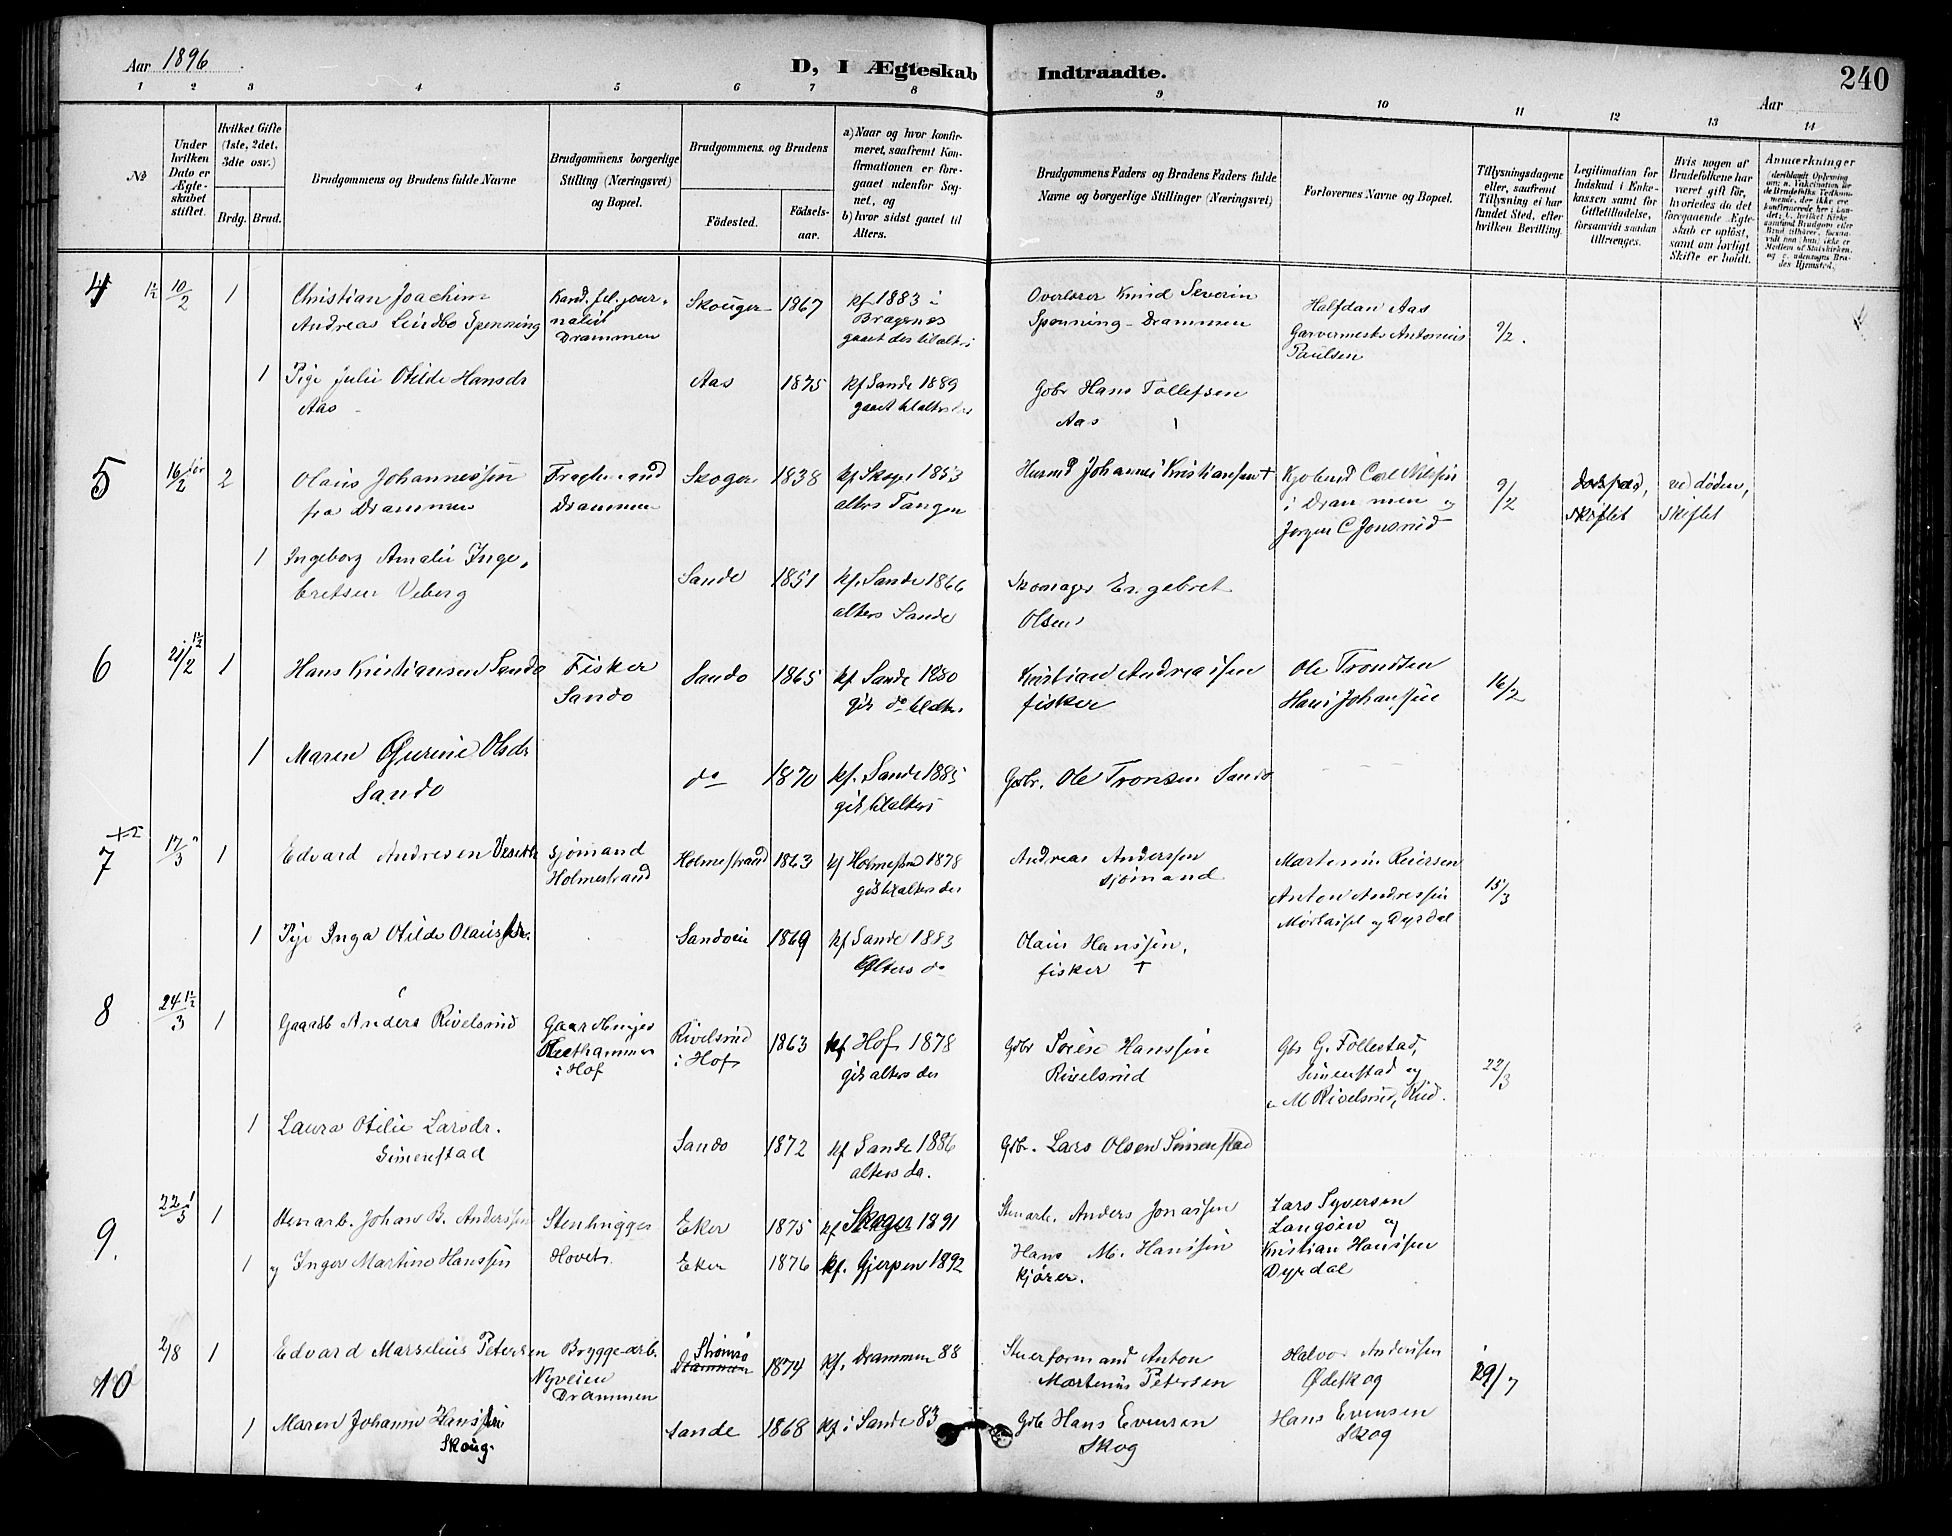 Aar 1896
D, I Ægteskab Indtraadte.
240
Aar
1 2 3 4 5 6 7 8 9 10 11 12 13 14
No
Under hvilken Dato er Ægteskabet stiftet.
Hvilket Gifte (1ste, 2det, 3die osv.)
Brdg. Brud.
Brudgommens og Brudens fulde Navne
Brudgommens borgerlige Stilling (Næringsvei) og Bopæl.
Brudgommens og Brudens
Fødested. Fødselsaar.
a) Naar og hvor konfirmeret, saafremt Konfirmationen er foregaaet udenfor Sognet, og
b) hvor sidst gaaet til Alters.
Brudgommens Faders og Brudens Faders fulde Navne og borgerlige Stillinger (Næringsvei)
Forlovernes Navne og Bopæl.
Tillysningsdagene eller, saafremt Tillysning ei har fundet Sted, efter hvilken Bevilling.
Legitimation for Indskud i Enkekassen samt for Giftetilladelse, forsaavidt saadan tiltrænges.
Hvis nogen af Brudefolkene har været gift før, hvorledes da det foregaaende Ægteskab er opløst, samt om lovligt Skifte er holdt.
Anmærkninger
4 10/2 1
Christian Joachim
Andreas Lindbo Spenning
Kand. fil. journalist
Drammen
Skouger 1867
kf 1883 i
Bragernes
gaaet des til alters
Overlærer Knud Severin
Spenning - Drammen
Halfdan Aas
Garvermester Antonius
Paulsen
9/2.
1 Pige Julie Otilde Hansdr
Aas
Aas 1875
kf Sande 1889
gaaet til alters des
Gbr Hans Tollefsen
Aas
5 16/2 2
Olaus Johannessen
fra Drammen
Fragtemand
Drammen
Skoger 1838
kf Skoger 1853
alters Tangen
Husmd Johannes Kristiansen †
Kjøbmd Carl Nilsen
i Drammen og
Jørgen C Jonsrud
9/2
skiftet
ved døden,
skiftet
1 Ingeborg Amalie Ingebretsen Veberg
Sande 1851
kf. Sande 1866
alters Sande
Skomager Engebret
Olsen
6 21/2 1
Hans Kristiansen Sande
Fisker
Sande
Sande 1865
kf Sande 1880
gik do til alter.
Kristian Andreassen
fisker
Ole Trondsen
Hans Johanssen
16/2
1 Maren Gurine Olsdr
Sande
do 1870
kf. Sande 1885
gik til alters
Gbr. Ole Tronsen Sande
7 17/3 1
Edvard Andresen
Sjømand
Holmestrand
Holmestrand 1863
kf Holmestrand 1878
gik til alters der
Andreas Anderssen
sjømand
Martinius Reiersen
Anton Andressen
og Dyrdal
15/3
1 Pige Inga Otilde Olausdr.
Sandveie 1869
kf Sande 1883
Alters do
Olaus Hanssen,
fisker †
8 24/3 1
Gaardb Anders Rivelsrud
Gaardbruger
i Hof
Rivelsrud
i Hof
1863
kf Hof 1878
gik alters der
Gbr Søren Hanssen
Rivelsrud
Gbr G. Follestad,
Simenstad og
M Rivelsrud, Rud.
22/3
1 Laura Otilie Larsdr.
Simenstad
Sande 1872
kf Sande 1886
alters da.
Gbr. Lars Olsen Simenstad
9. 22/5 1
Stenarb. Johan B. Anderssen
Stenhugger
Eker 1875
kf Skoger 1891
Stenarb. Anders Jonassen
Lars Syversen
Langøen og
1 og Inger Martine Hanssen
Hovet
Eker 1876
kf. Gjerpen 1892
Hans M. Hanssen
kjører.
Kristian Hanssen
Dyrdal
10 2/8 1
Edvard Marselius Petersen
Bryggearb.
Nyveien
Drammen
Strømsø
Drammen
1874
kf. Drammen 88
Stuerformand Anton
Martinius Petersen
Halvor Andersen
Ødeskog
29/7
1 Maren Johanne Hanssen
Skoug.
Sande 1868
kf i Sande 83
Gbr Hans Evensen
Skog
Hans Evensen
Skog